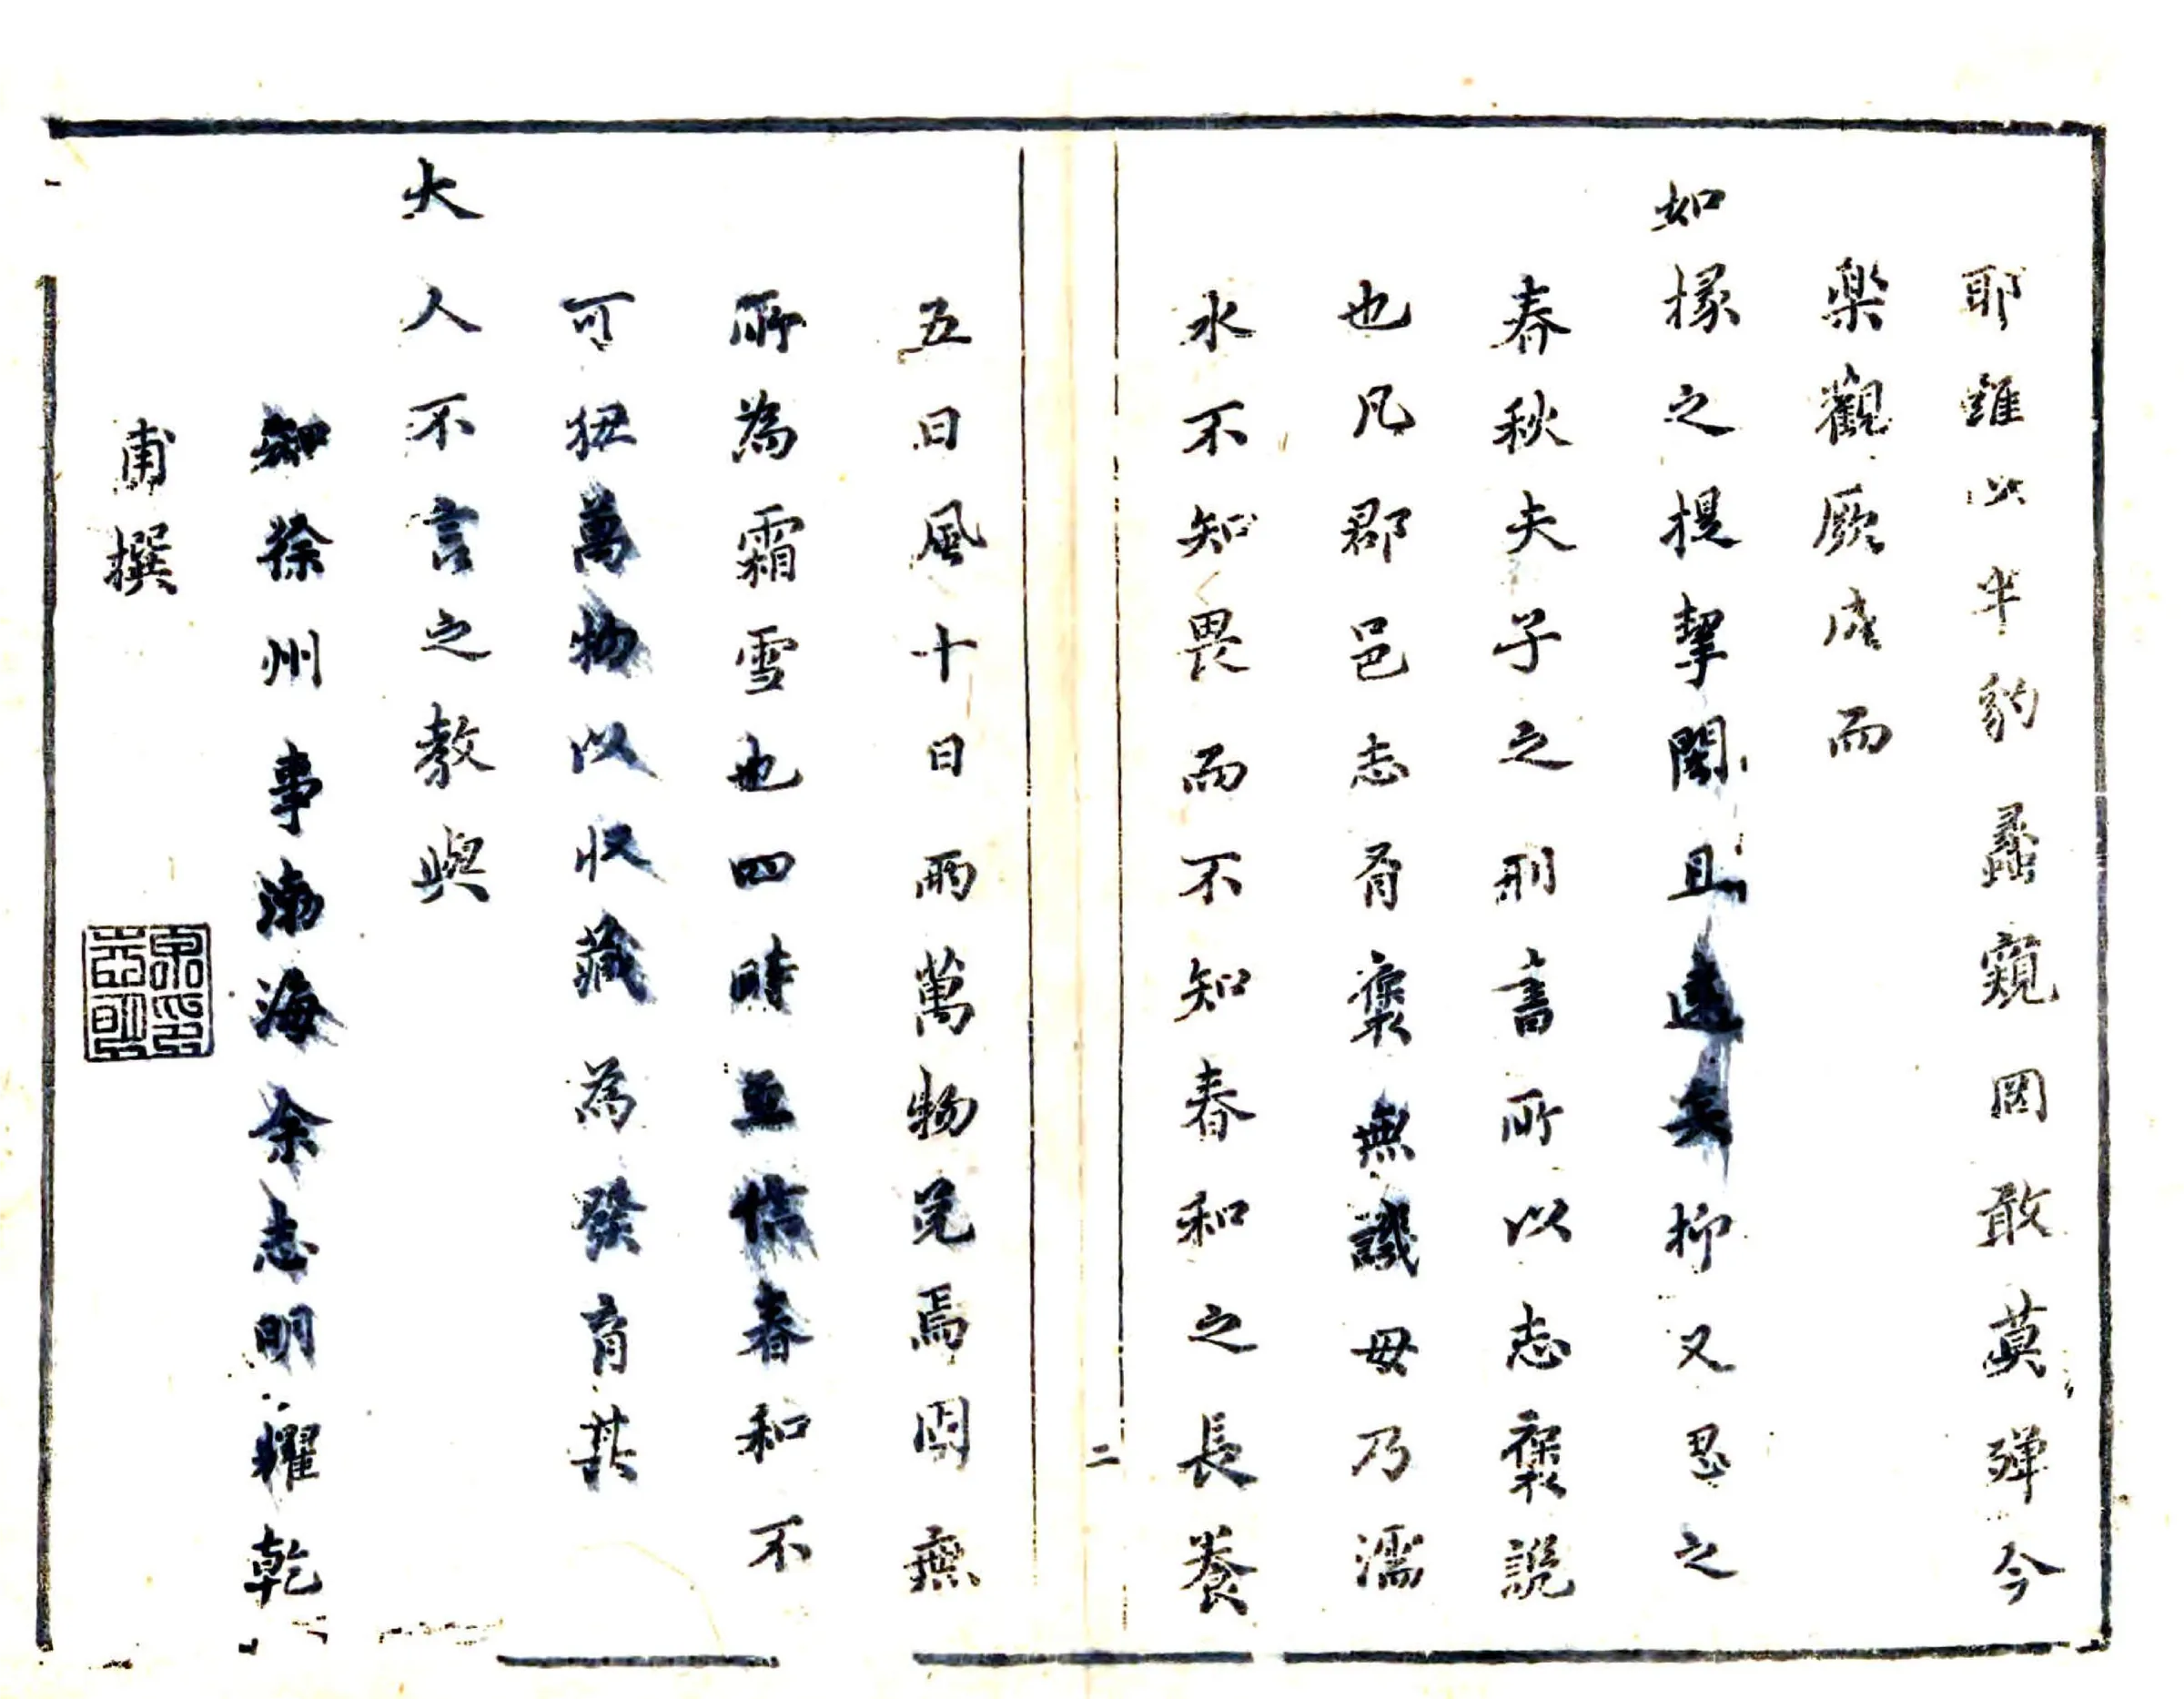 耶雖以半豹蠡窺罔敢莫殫今
樂觀厥成而
如椽之提挈闊且遠矣抑又思之
春秋夫子之刑書所以志褒說
也凡郡邑志胥褒無譏毋乃濡
水不知畏而不知春和之長養
二
五日風十日雨萬物兌焉罔無
所為霜雪也四時並信春和不
可狃萬物以收藏為發育其
大人不言之教與
知徐州事渤海余志明耀乾
甫撰